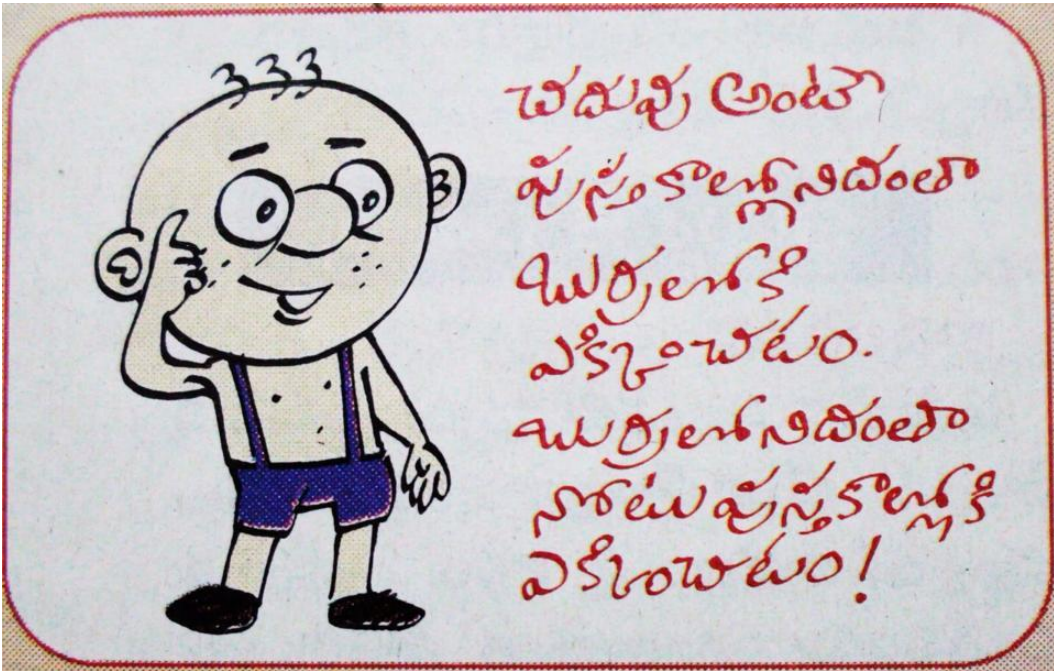 చదువు అంటే
పుస్తకాల్లోనిదంతా
బుర్రలోకి
ఎక్కించటం.
బుర్రలోనిదంతా
నోటు పుస్తకాల్లోకి
ఎక్కించటం!